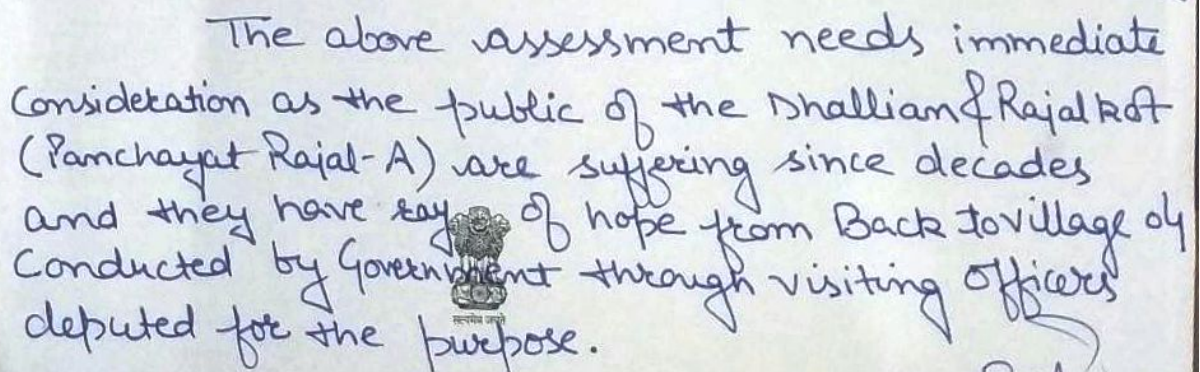 The above assessment needs immediate
Consideration as the public of the Dhallian & Rajal Kot
(Panchayat Rajal-A) are suffering since decades
and they have ray of hope from Back to village 04
Conducted by Government through visiting officers
deputed for the purpose.
सत्यमेव जयते